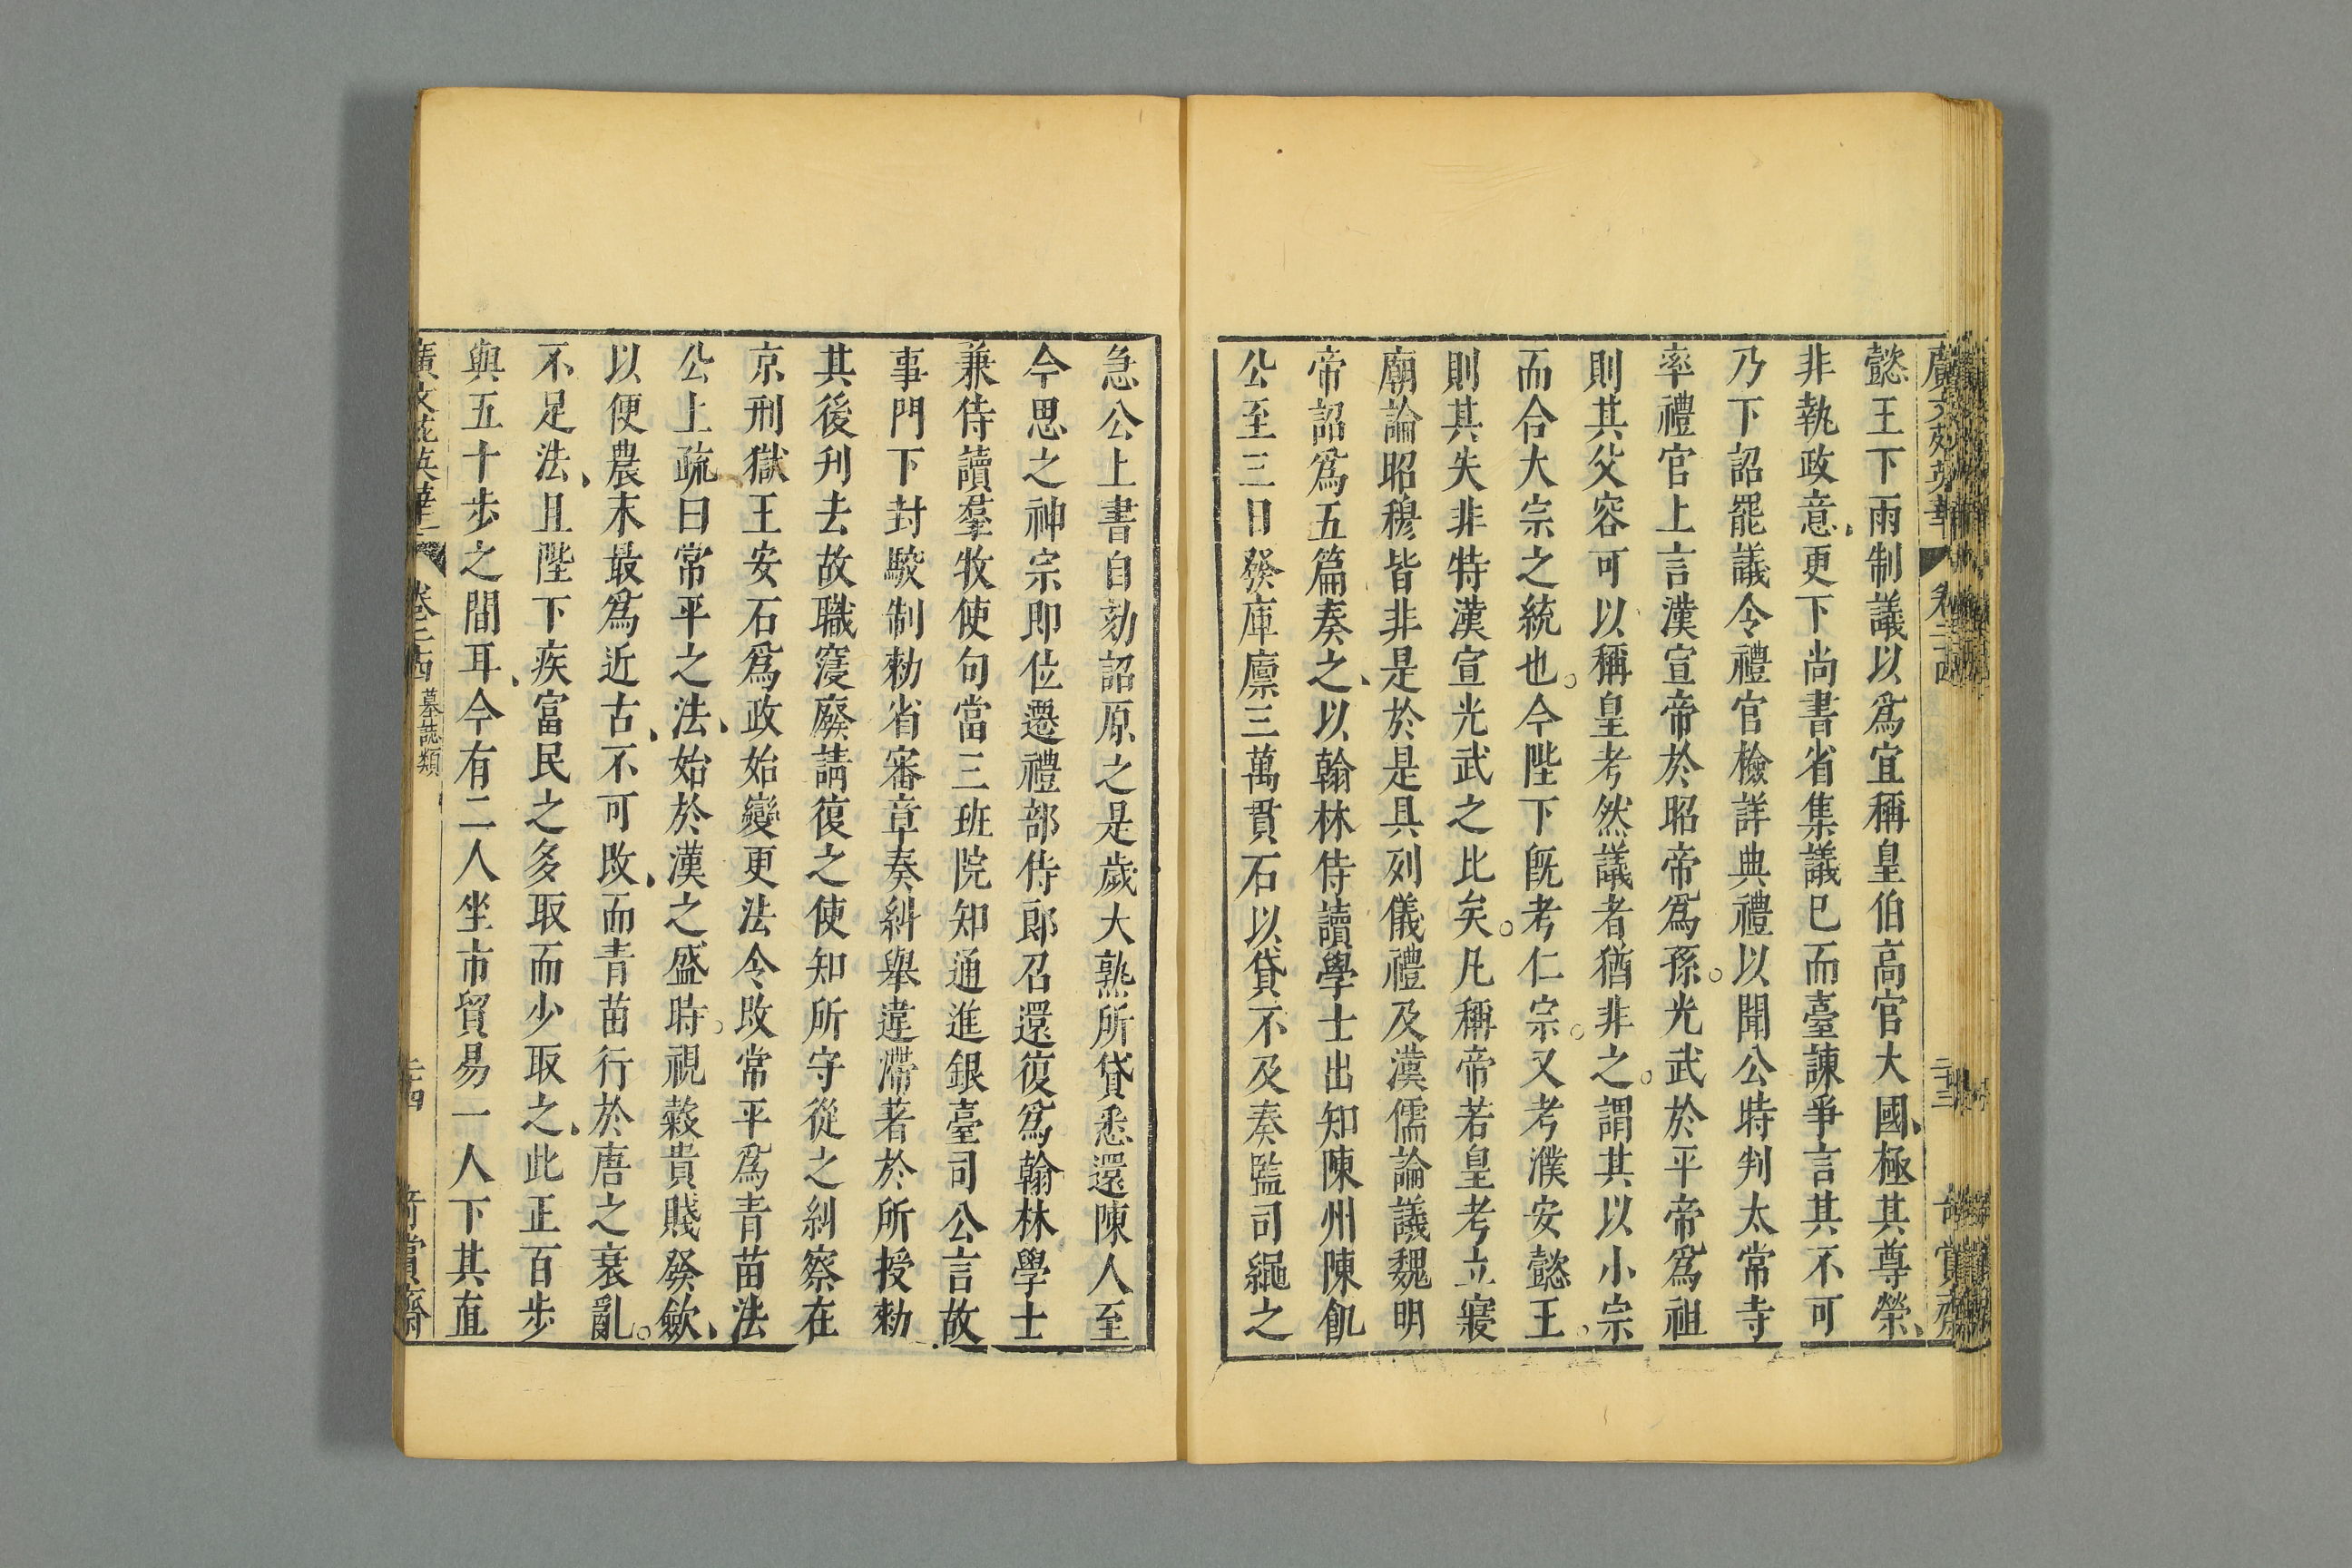 懿王下兩制議以爲宜稱皇伯高官大國、極其尊榮、
非執政意、更下尚書省集議已而臺諫爭言其不可
乃下詔罷議令禮官檢詳典禮以聞公時判太常寺
率禮官上言漢宣帝於昭帝爲孫。光武於平帝爲祖
則其父容可以稱皇考然議者猶非之。謂其以小宗
而合大宗之統也。今陛下既考仁宗。又考濮安懿王。
則其失非特漢宣光武之比矣。凡稱帝若皇考立寢
廟論昭穆皆非是於是具列儀禮及漢儒論議魏明
帝詔爲五篇奏之、以翰林侍讀學士出知陳州陳飢
公至三日發庫廪三萬貫石以貸不及奏監司繩之
急公上書自劾詔原之是歲大熟所貸悉還陳人至
今思之神宗即位遷禮部侍郎召還復爲翰林學士
兼侍讀羣牧使句當三班院知通進銀臺司公言故
事門下封駮制勅省審章奏糾舉違滯著於所授勅
其後刋去故職寖廢請復之使知所守從之糾察在
京刑獄王安石爲政始變更法令改常平爲青苗法
公上疏曰常平之法、始於漢之盛時。視榖貴賤發歛、
以便農末最爲近古、不可改、而青苗行於唐之衰亂。
不足法、且陛下疾富民之多取而少取之、此正百步
與五十步之間耳、今有二人坐市貿易一人下其直
廣文苑英華 卷二十四 墓誌類 二十四 奇賞齋